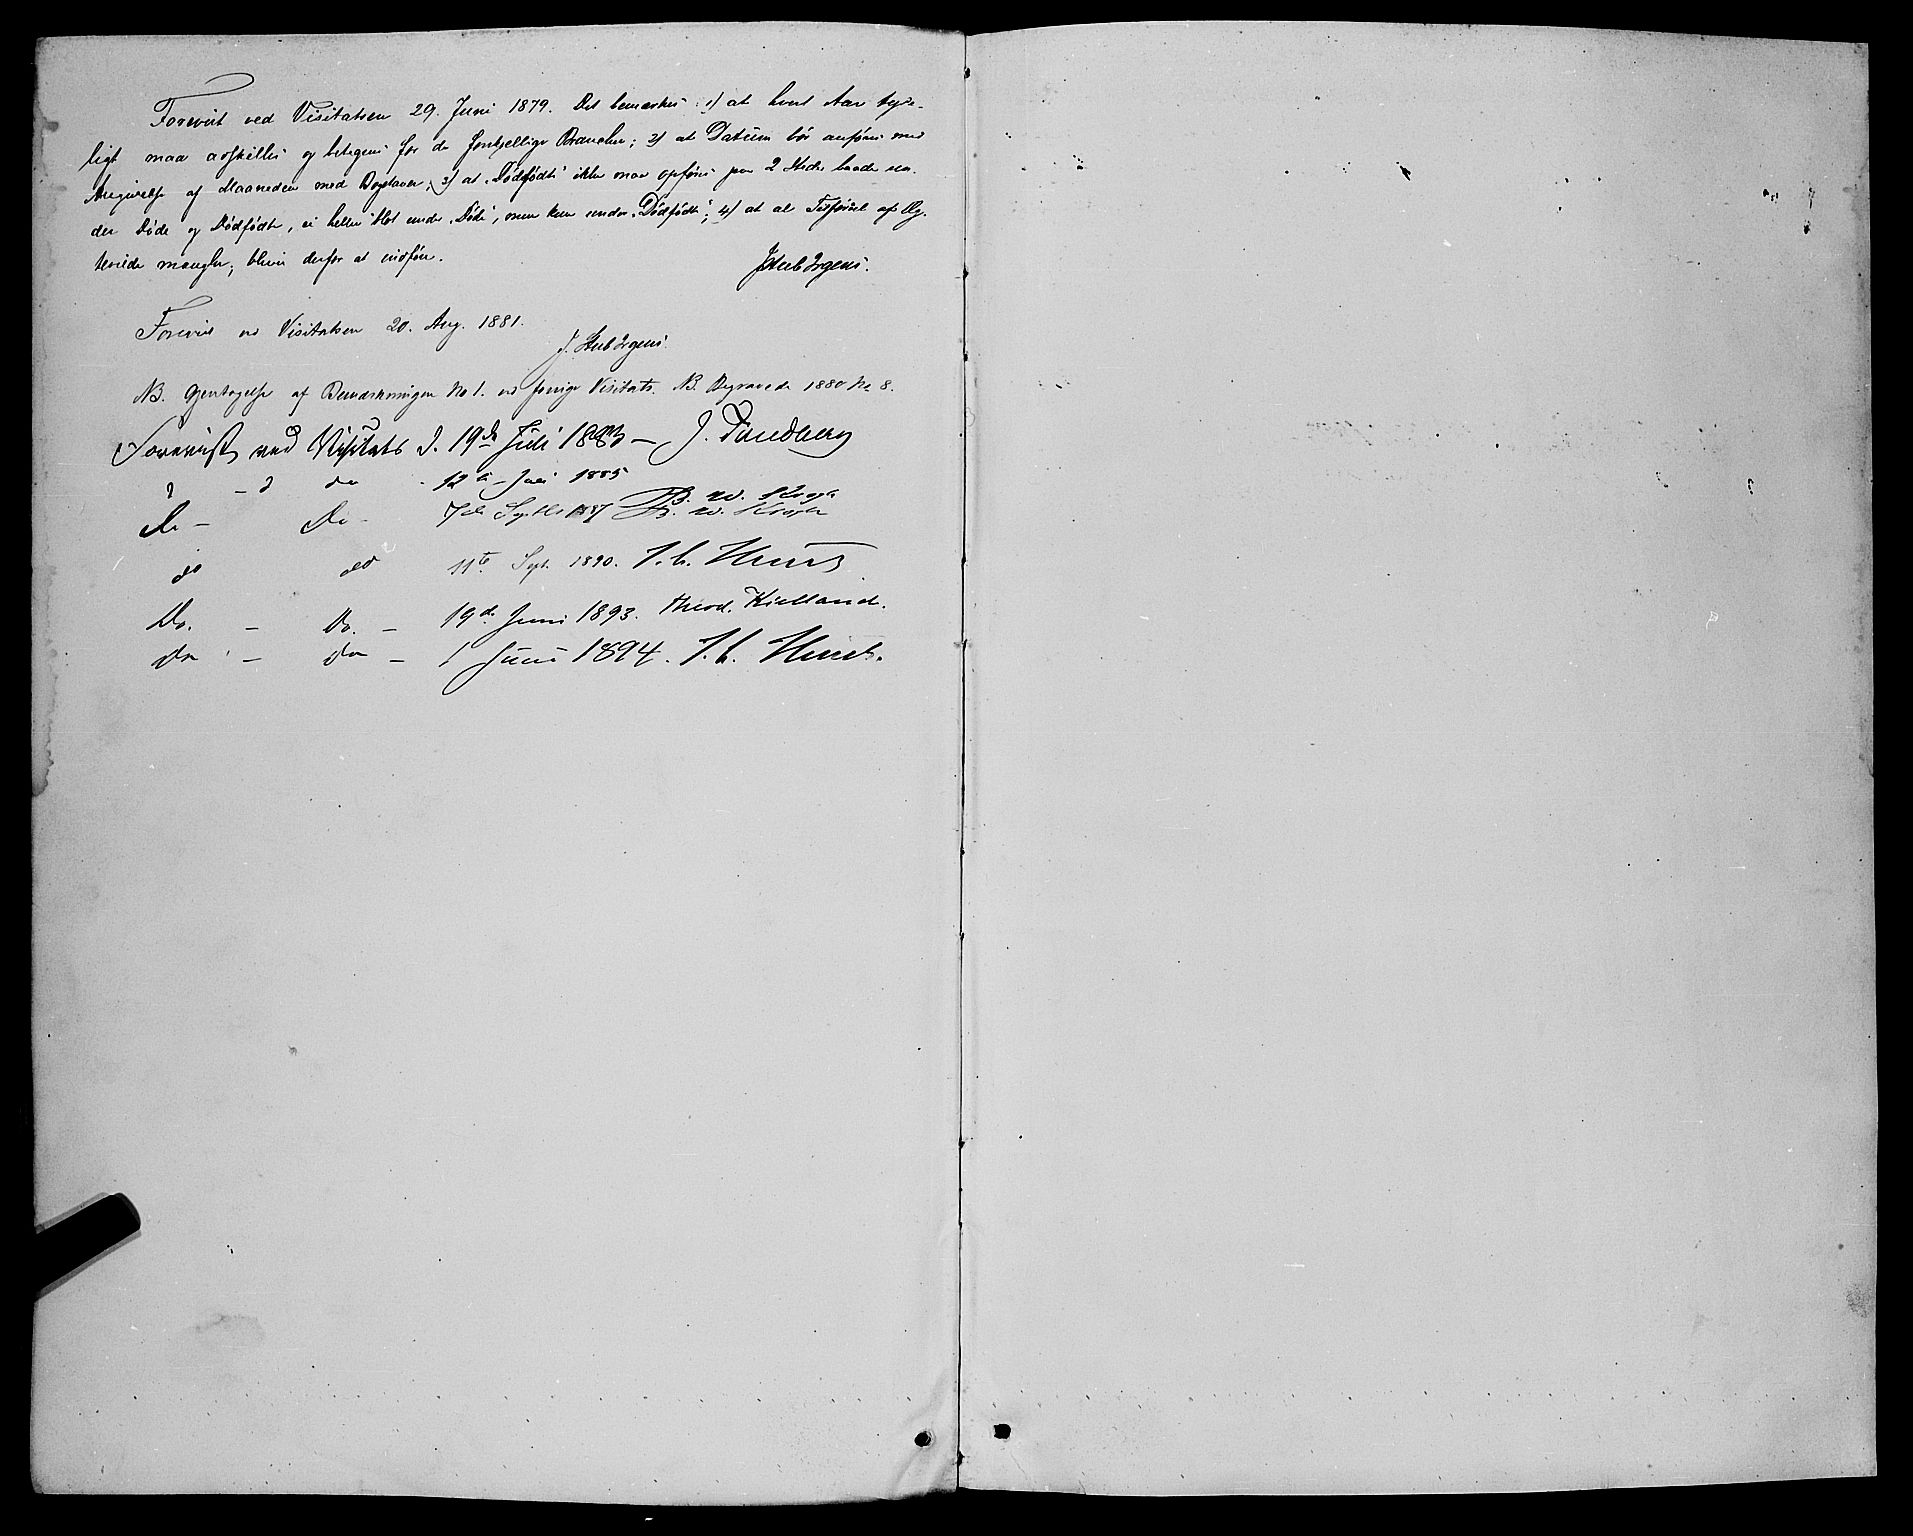 Forevist ved Visitatsen 29. Juni 1879. Det bemærkes: 1) at hvert Aar tyde-
ligt maa adskilles og betegnes for de forskjellige Brancher; 2) at Datum bør anføres med
Angivelse af Maaneden med Bogstaver; 3) at "Dødfødte" ikke maa opføres paa 2 Steder baade un-
der Døde og Dødfødte, ei heller blot under "Døde", men kun under "Dødfødte"; 4) at al Tilførsel af Æg-
teviede mangler; bliver derfor at indføre.
J. Steeb Irgens.
Forevist ved Visitatsen 20. Aug. 1881.
J. Irgens
NB. Gjentagelse af Bemærkningen No 1. ved forrige Visitats. NB. Begravede 1880 No 8.
Forevist ved Visitats d. 19de Juli 1883 – J. Sandberg
do 12te Juli 1885
Do – Do – 7de Septbr 1887 B. W. Krogh
do do 11te Sept. 1890. J. C. Heuch
Do. – Do. – 19de Juni 1893. Theod. Kielland.
Do – Do – 1 Juni 1894. J. C. Heuch.